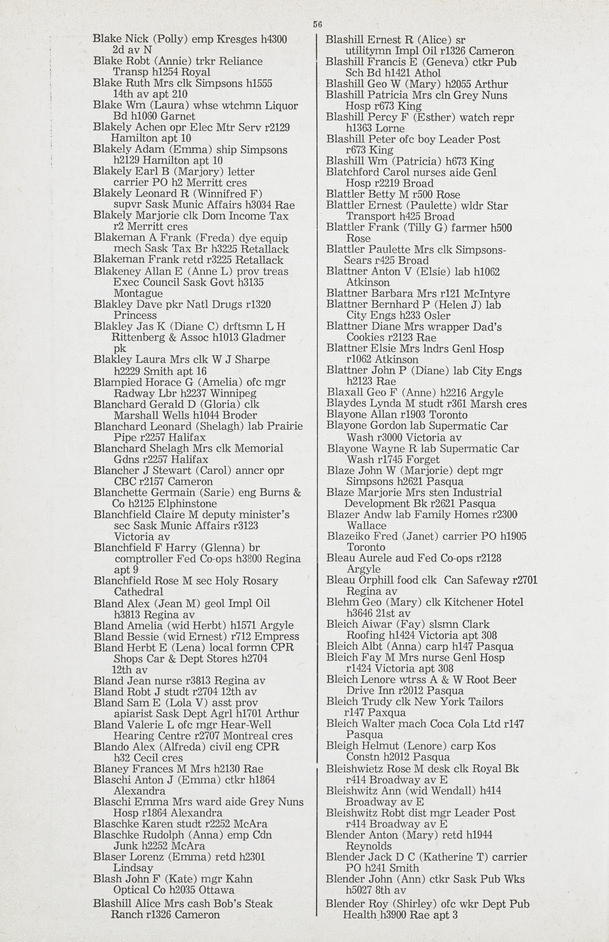 56
Blake Nick (Polly) emp Kresges h4300
2d av N
Blake Robt (Annie) trkr Reliance
Transp h1254 Royal
Blake Ruth Mrs clk Simpsons h1555
14th av apt 210
Blake Wm (Laura) whse wtchmn Liquor
Bd h1060 Garnet
Blakely Achen opr Elec Mtr Serv r2129
Hamilton apt 10
Blakely Adam (Emma) ship Simpsons
h2129 Hamilton apt 10
Blakely Earl B (Marjory) letter
carrier PO h2 Merritt cres
Blakely Leonard R (Winnifred F)
supvr Sask Munic Affairs h3034 Rae
Blakely Marjorie clk Dom Income Tax
r2 Merritt cres
Blakeman A Frank (Freda) dye equip
mech Sask Tax Br h3225 Retallack
Blakeman Frank retd r3225 Retallack
Blakeney Allan E (Anne L) prov treas
Exec Council Sask Govt h3135
Montague
Blakley Dave pkr Natl Drugs r1320
Princess
Blakley Jas K (Diane C) drftsmn L H
Rittenberg & Assoc h1013 Gladmer
pk
Blakley Laura Mrs clk W J Sharpe
h2229 Smith apt 16
Blampied Horace G (Amelia) ofc mgr
Radway Lbr h2237 Winnipeg
Blanchard Gerald D (Gloria) clk
Marshall Wells h1044 Broder
Blanchard Leonard (Shelagh) lab Prairie
Pipe r2257 Halifax
Blanchard Shelagh Mrs clk Memorial
Gdns r2257 Halifax
Blancher J Stewart (Carol) anncr opr
CBC r2157 Cameron
Blanchette Germain (Sarie) eng Burns &
Co h2125 Elphinstone
Blanchfield Claire M deputy minister's
sec Sask Munic Affairs r3123
Victoria av
Blanchfield F Harry (Glenna) br
comptroller Fed Co-ops h3800 Regina
apt 9
Blanchfield Rose M sec Holy Rosary
Cathedral
Bland Alex (Jean M) geol Impl Oil
h3813 Regina av
Bland Amelia (wid Herbt) h1571 Argyle
Bland Bessie (wid Ernest) r712 Empress
Bland Herbt E (Lena) local formn CPR
Shops Car & Dept Stores h2704
12th av
Bland Jean nurse r3813 Regina av
Bland Robt J studt r2704 12th av
Bland Sam E (Lola V) asst prov
apiarist Sask Dept Agrl h1701 Arthur
Bland Valerie L ofc mgr Hear-Well
Hearing Centre r2707 Montreal cres
Blando Alex (Alfreda) civil eng CPR
h32 Cecil cres
Blaney Frances M Mrs h2130 Rae
Blaschi Anton J (Emma) ctkr h1864
Alexandra
Blaschi Emma Mrs ward aide Grey Nuns
Hosp r1864 Alexandra
Blaschke Karen studt r2252 McAra
Blaschke Rudolph (Anna) emp Cdn
Junk h2252 McAra
Blaser Lorenz (Emma) retd h2301
Lindsay
Blash John F (Kate) mgr Kahn
Optical Co h2035 Ottawa
Blashill Alice Mrs cash Bob's Steak
Ranch r1326 Cameron
Blashill Ernest R (Alice) sr
utilitymn Impl Oil r1326 Cameron
Blashill Francis E (Geneva) ctkr Pub
Sch Bd h1421 Athol
Blashill Geo W (Mary) h2055 Arthur
Blashill Patricia Mrs cln Grey Nuns
Hosp r673 King
Blashill Percy F (Esther) watch repr
h1363 Lorne
Blashill Peter ofc boy Leader Post
r673 King
Blashill Wm (Patricia) h673 King
Blatchford Carol nurses aide Genl
Hosp r2219 Broad
Blattler Betty M r500 Rose
Blattler Ernest (Paulette) wldr Star
Transport h425 Broad
Blattler Frank (Tilly G) farmer h500
Rose
Blattler Paulette Mrs clk Simpsons-
Sears r425 Broad
Blattner Anton V (Elsie) lab h1062
Atkinson
Blattner Barbara Mrs r121 McIntyre
Blattner Bernhard P (Helen J) lab
City Engs h233 Osler
Blattner Diane Mrs wrapper Dad's
Cookies r2123 Rae
Blattner Elsie Mrs lndrs Genl Hosp
r1062 Atkinson
Blattner John P (Diane) lab City Engs
h2123 Rae
Blaxall Geo F (Anne) h2216 Argyle
Blaydes Lynda M studt r361 Marsh cres
Blayone Allan r1903 Toronto
Blayone Gordon lab Supermatic Car
Wash r3000 Victoria av
Blayone Wayne R lab Supermatic Car
Wash r1745 Forget
Blaze John W (Marjorie) dept mgr
Simpsons h2621 Pasqua
Blaze Marjorie Mrs sten Industrial
Development Bk r2621 Pasqua
Blazer Andw lab Family Homes r2300
Wallace
Blazeiko Fred (Janet) carrier PO h1905
Toronto
Bleau Aurele aud Fed Co-ops r2128
Argyle
Bleau Orphill food clk Can Safeway r2701
Regina av
Blehm Geo (Mary) clk Kitchener Hotel
h3646 21st av
Bleich Aiwar (Fay) slsmn Clark
Roofing h1424 Victoria apt 308
Bleich Albt (Anna) carp h147 Pasqua
Bleich Fay M Mrs nurse Genl Hosp
r1424 Victoria apt 308
Bleich Lenore wtrss A & W Root Beer
Drive Inn r2012 Pasqua
Bleich Trudy clk New York Tailors
r147 Paxqua
Bleich Walter mach Coca Cola Ltd r147
Pasqua
Bleigh Helmut (Lenore) carp Kos
Constn h2012 Pasqua
Bleishwietz Rose M desk clk Royal Bk
r414 Broadway av E
Bleishwitz Ann (wid Wendall) h414
Broadway av E
Bleishwitz Robt dist mgr Leader Post
r414 Broadway av E
Blender Anton (Mary) retd h1944
Reynolds
Blender Jack D C (Katherine T) carrier
PO h241 Smith
Blender John (Ann) ctkr Sask Pub Wks
h5027 8th av
Blender Roy (Shirley) ofc wkr Dept Pub
Health h3900 Rae apt 3